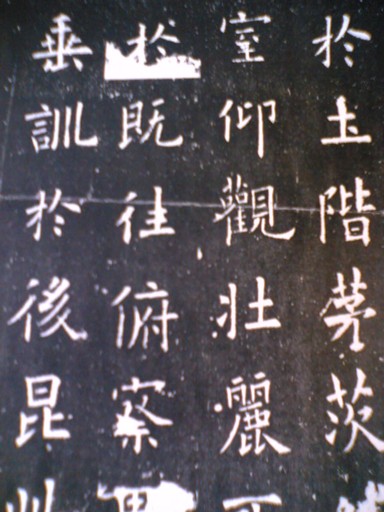 於土階茅茨
室仰觀壯麗
於既往俯察
垂訓於後昆